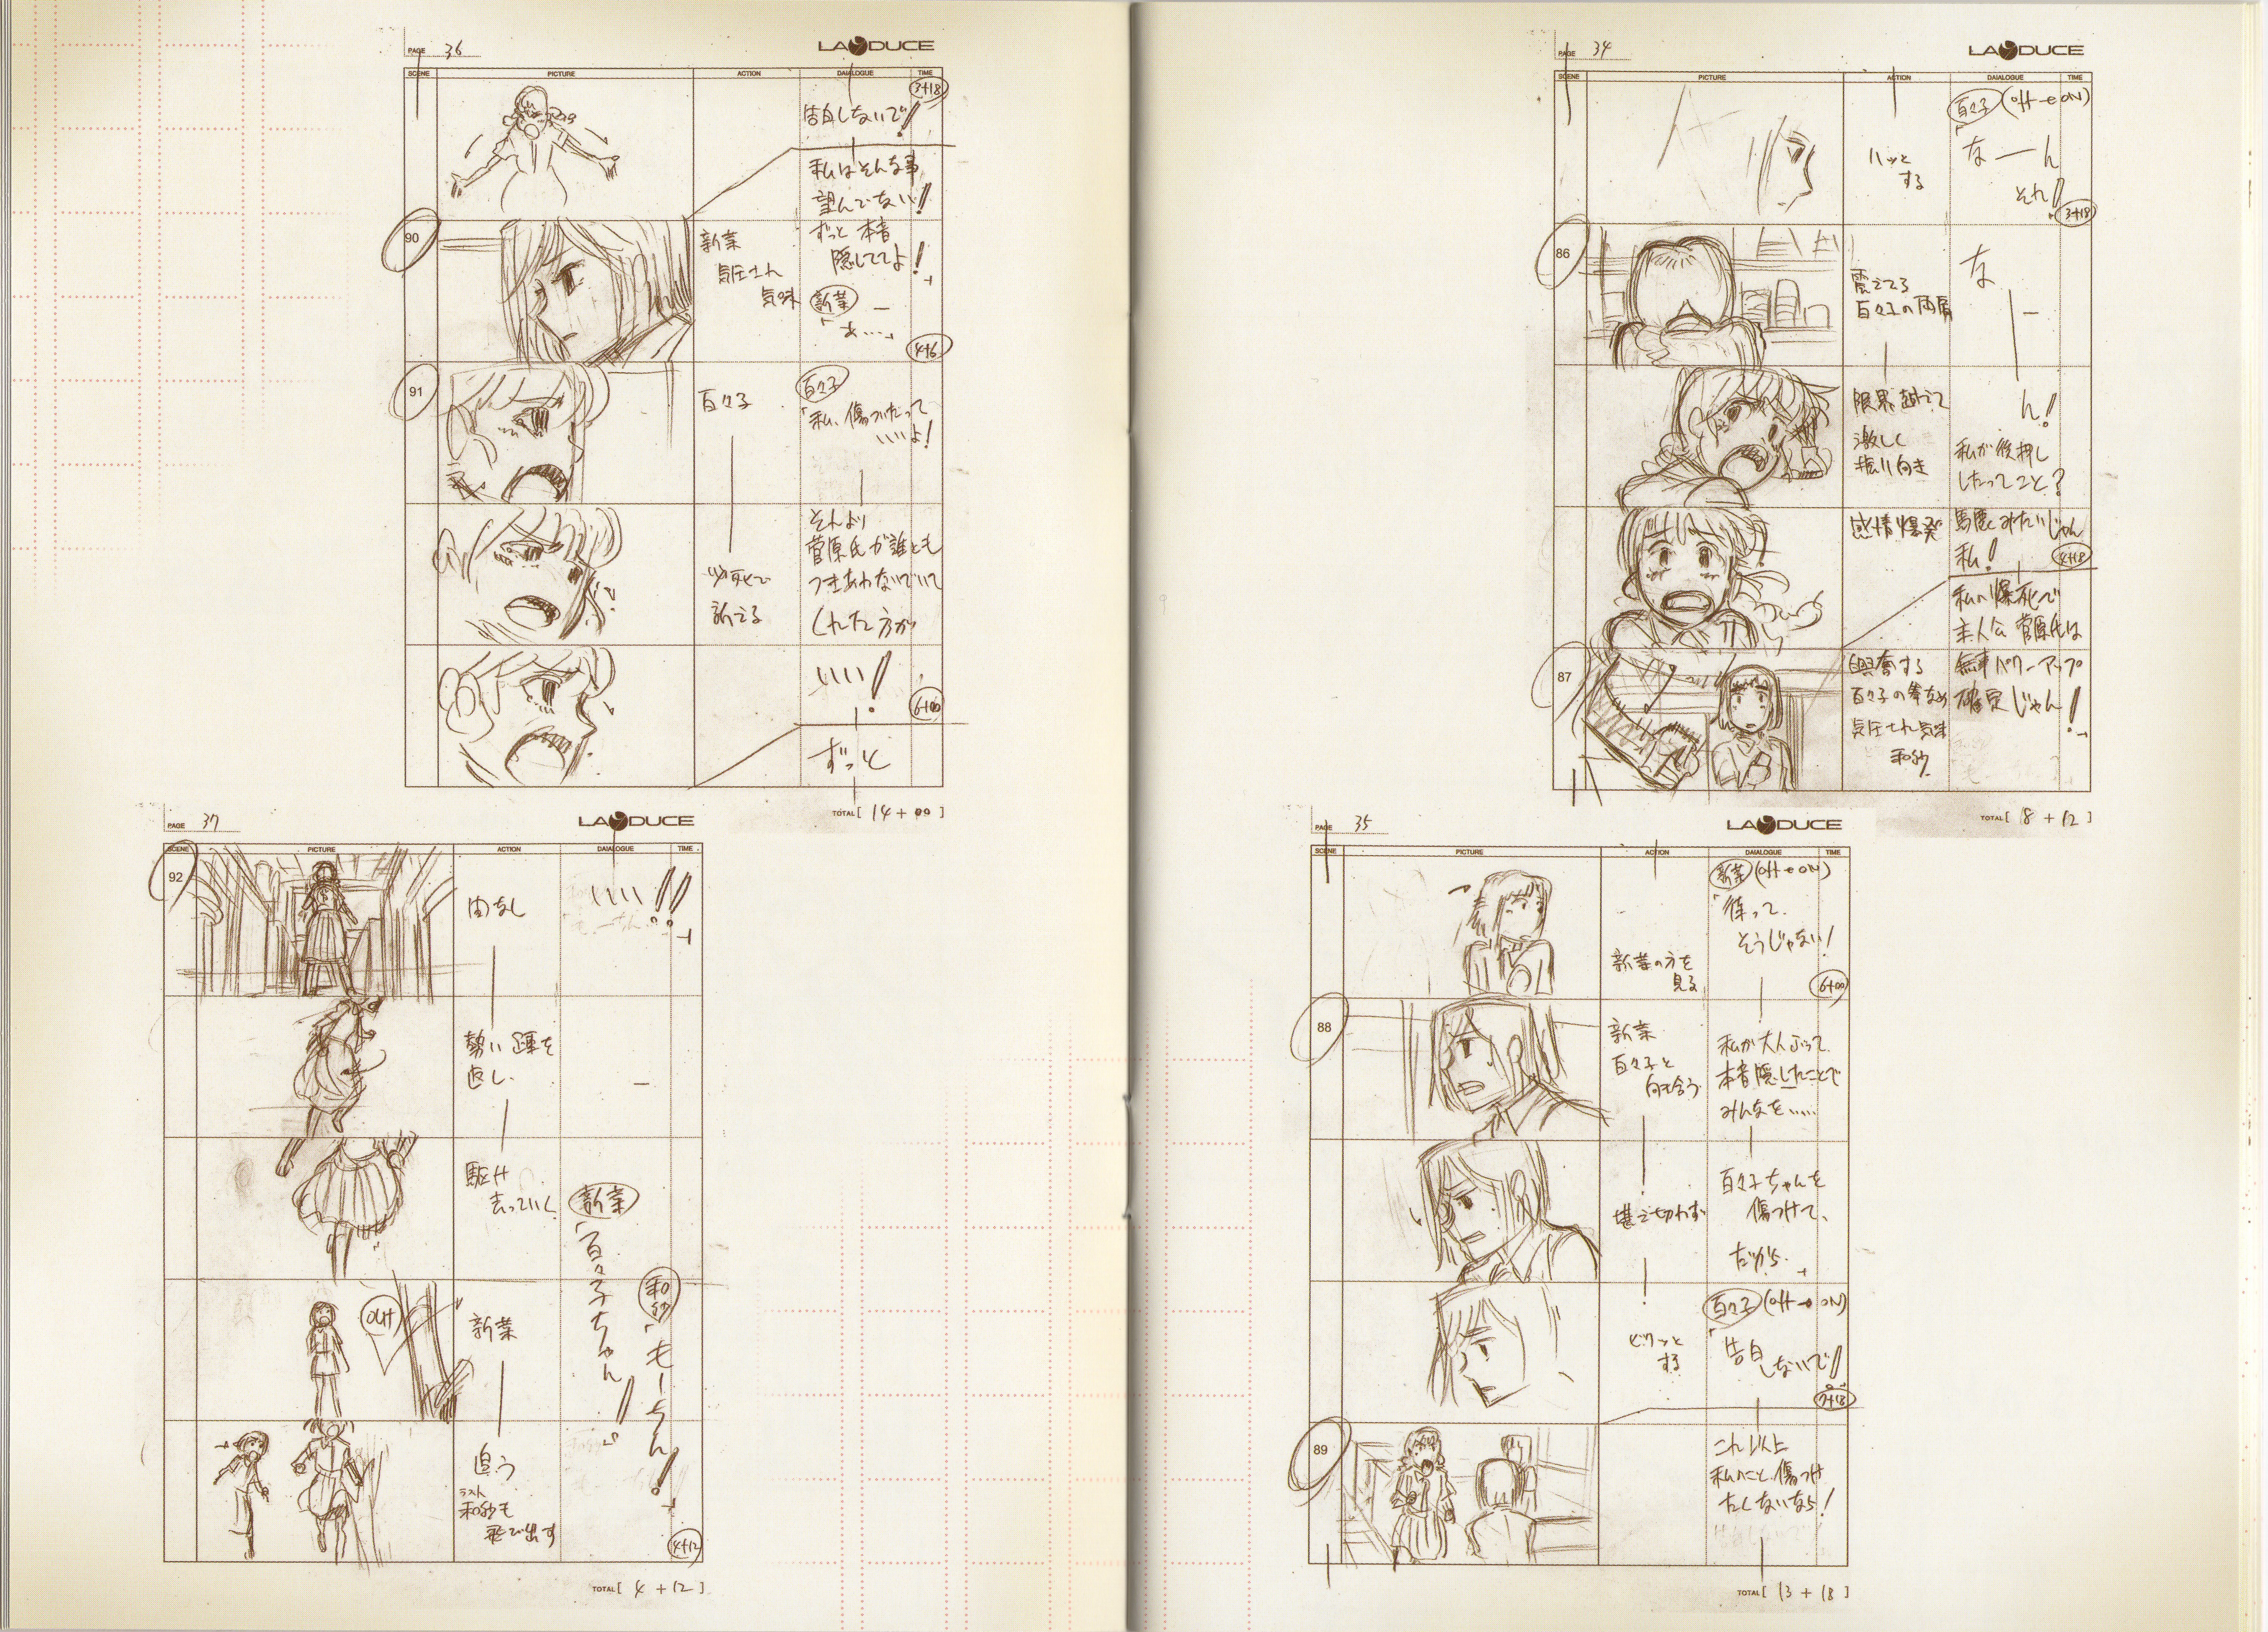 PAGE 34
LADUCE
SCENE PICTURE ACTION DAIALOGUE TIME
ハッと
する
百々子 (off→ON)
「なーん
それ!
3+18
86
震えてる
百々子の両肩
な
ー
限界越えて
激しく
振り向き
ん!
私が後押し
したってこと?
感情爆発
馬鹿みたいじゃん
私!
4+18
私の爆死で
主人公 菅原氏は
87
興奮する
百々子の拳なめ
気圧され気味
和紗
無事パワーアップ
確定じゃん!」
TOTAL [ 18 + 12 ]
PAGE 35
LADUCE
SCENE PICTURE ACTION DAIALOGUE TIME
新菜の方を
見る
新菜 (off→ON)
「待って、
そうじゃない!
6+00
88
新菜
百々子と
向き合う
私が大人ぶって
本音隠したことで
みんなを……
堪え切れず
百々子ちゃんを
傷つけて、
だから」
ビクッと
する
百々子 (off→ON)
「告白
しないで!
7+18
89
これ以上
私のこと傷つけ
たくないなら!
TOTAL [ 13 + 18 ]
PAGE 36
LADUCE
SCENE PICTURE ACTION DAIALOGUE TIME
3+18
告白しないで!
私はそんな事
望んでない!
90
新菜
気圧され
気味
ずっと本音
隠しててよ!」
新菜
「あ……」
4+6
91
百々子
百々子
「私、傷ついたって
いいよ!
必死で
訴える
それより
菅原氏が誰とも
つきあわないでいて
くれた方が
いい!
6+00
ずっと
TOTAL [ 14 + 00 ]
PAGE 37
LADUCE
SCENE PICTURE ACTION DAIALOGUE TIME
92
間なし
いい!!」
勢い踵を
返し、
駆け
去っていく
新菜
「百々子ちゃん!」
和紗
「もーちん!」
OUT
新菜
追う
ラスト
和紗も
飛び出す
4+12
TOTAL [ 4 + 12 ]